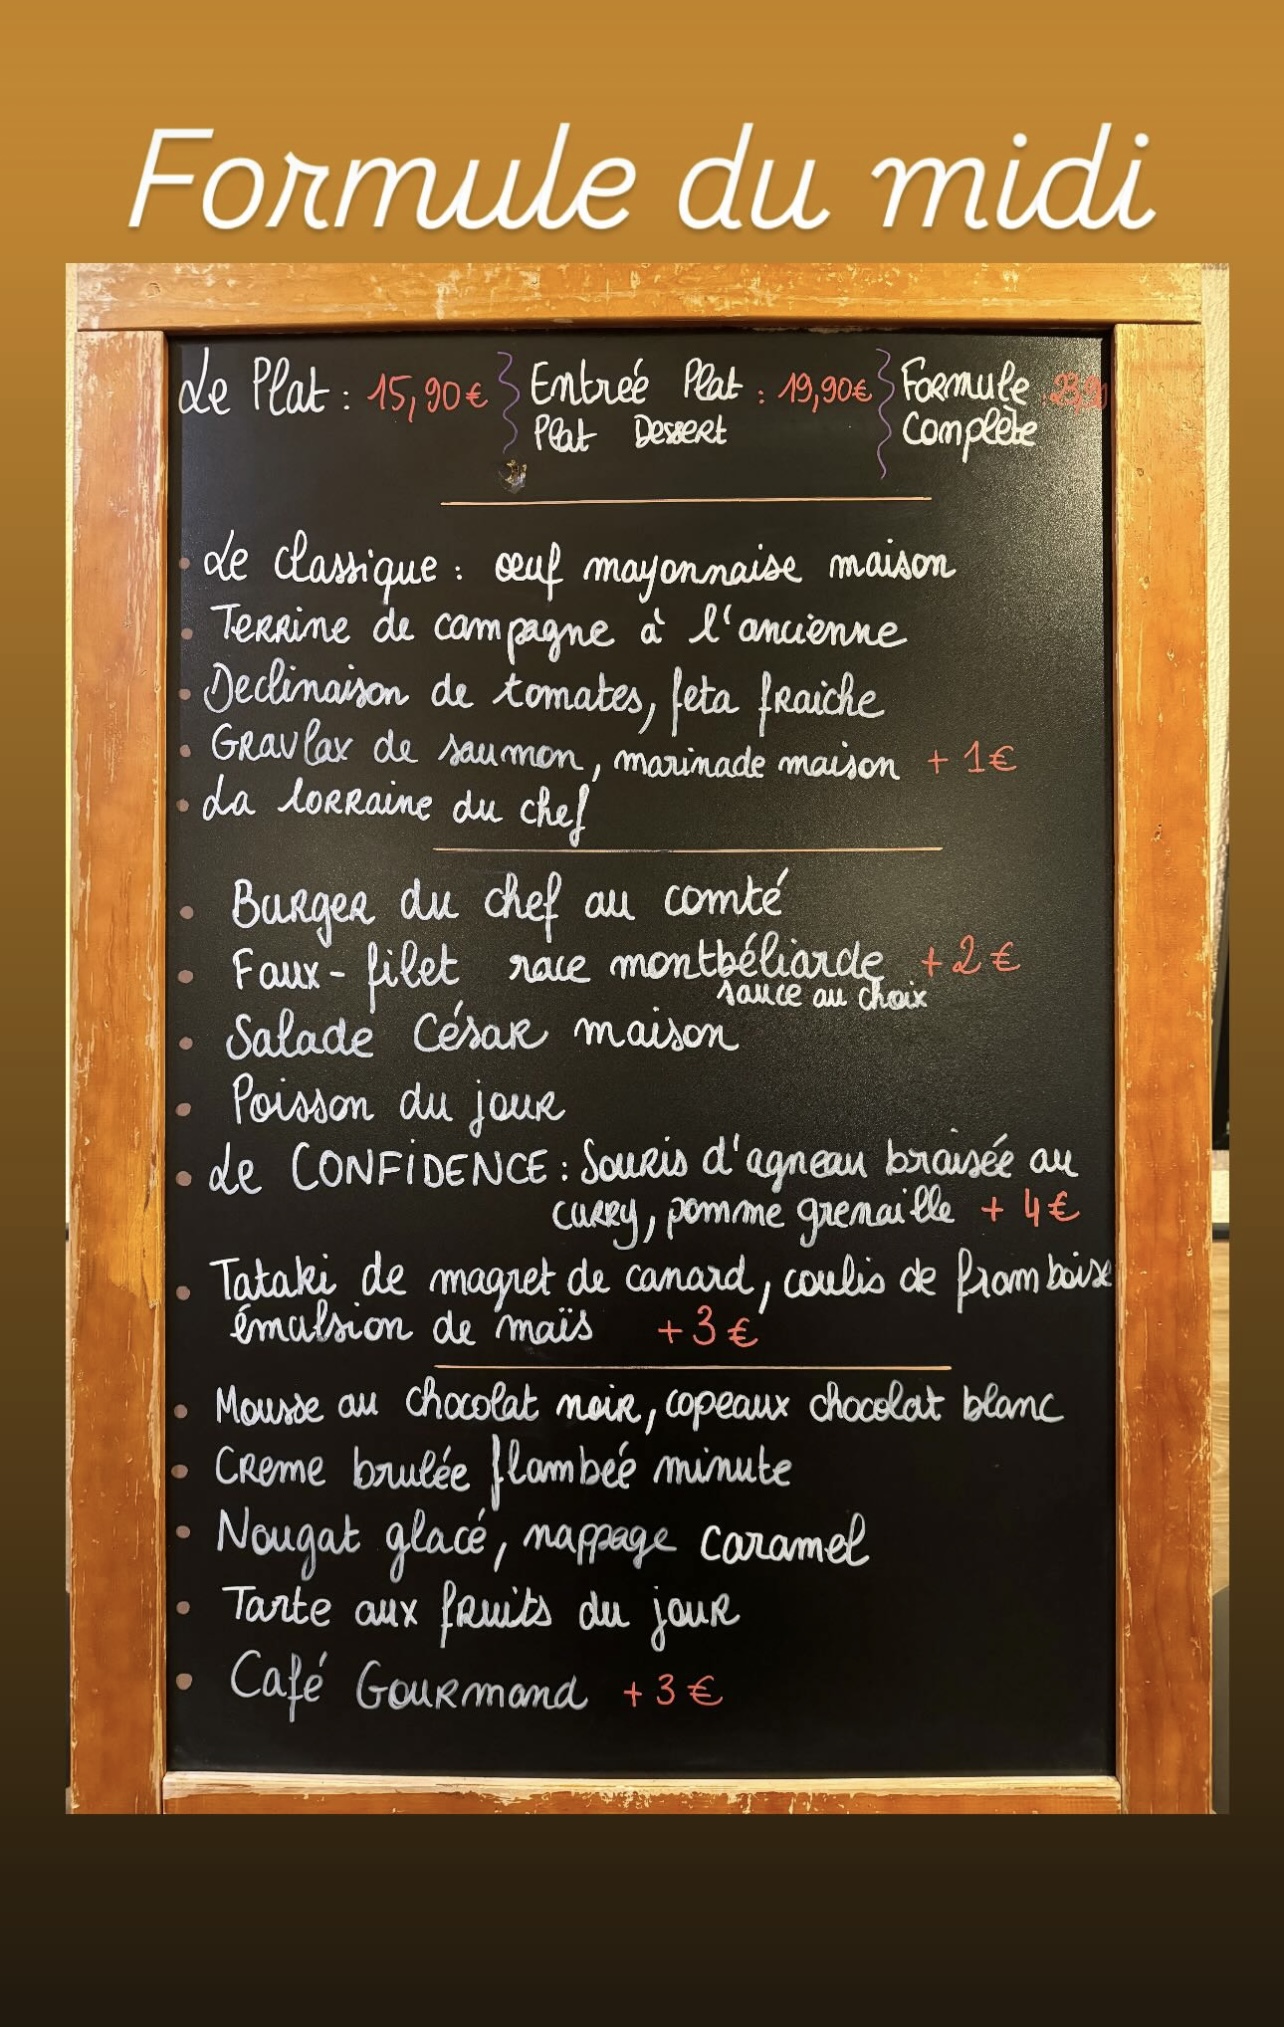 Formule du midi
Le Plat : 15,90€ Entreé Plat : 19,90€ Formule : 23,90
Plat Dessert Complète
• Le classique : œuf mayonnaise maison
• Terrine de campagne à l'ancienne
• Declinaison de tomates, feta fraiche
• Gravlax de saumon, marinade maison + 1€
• La lorraine du chef
• Burger du chef au comté
• Faux-filet race montbéliarde + 2€
sauce au choix
• Salade César maison
• Poisson du jour
• Le CONFIDENCE : Souris d'agneau braisée au
curry, pomme grenaille + 4€
• Tataki de magret de canard, coulis de framboise
émulsion de maïs + 3€
• Mousse au chocolat noir, copeaux chocolat blanc
• Creme brulée flambeé minute
• Nougat glacé, nappage caramel
• Tarte aux fruits du jour
• Café Gourmand + 3€